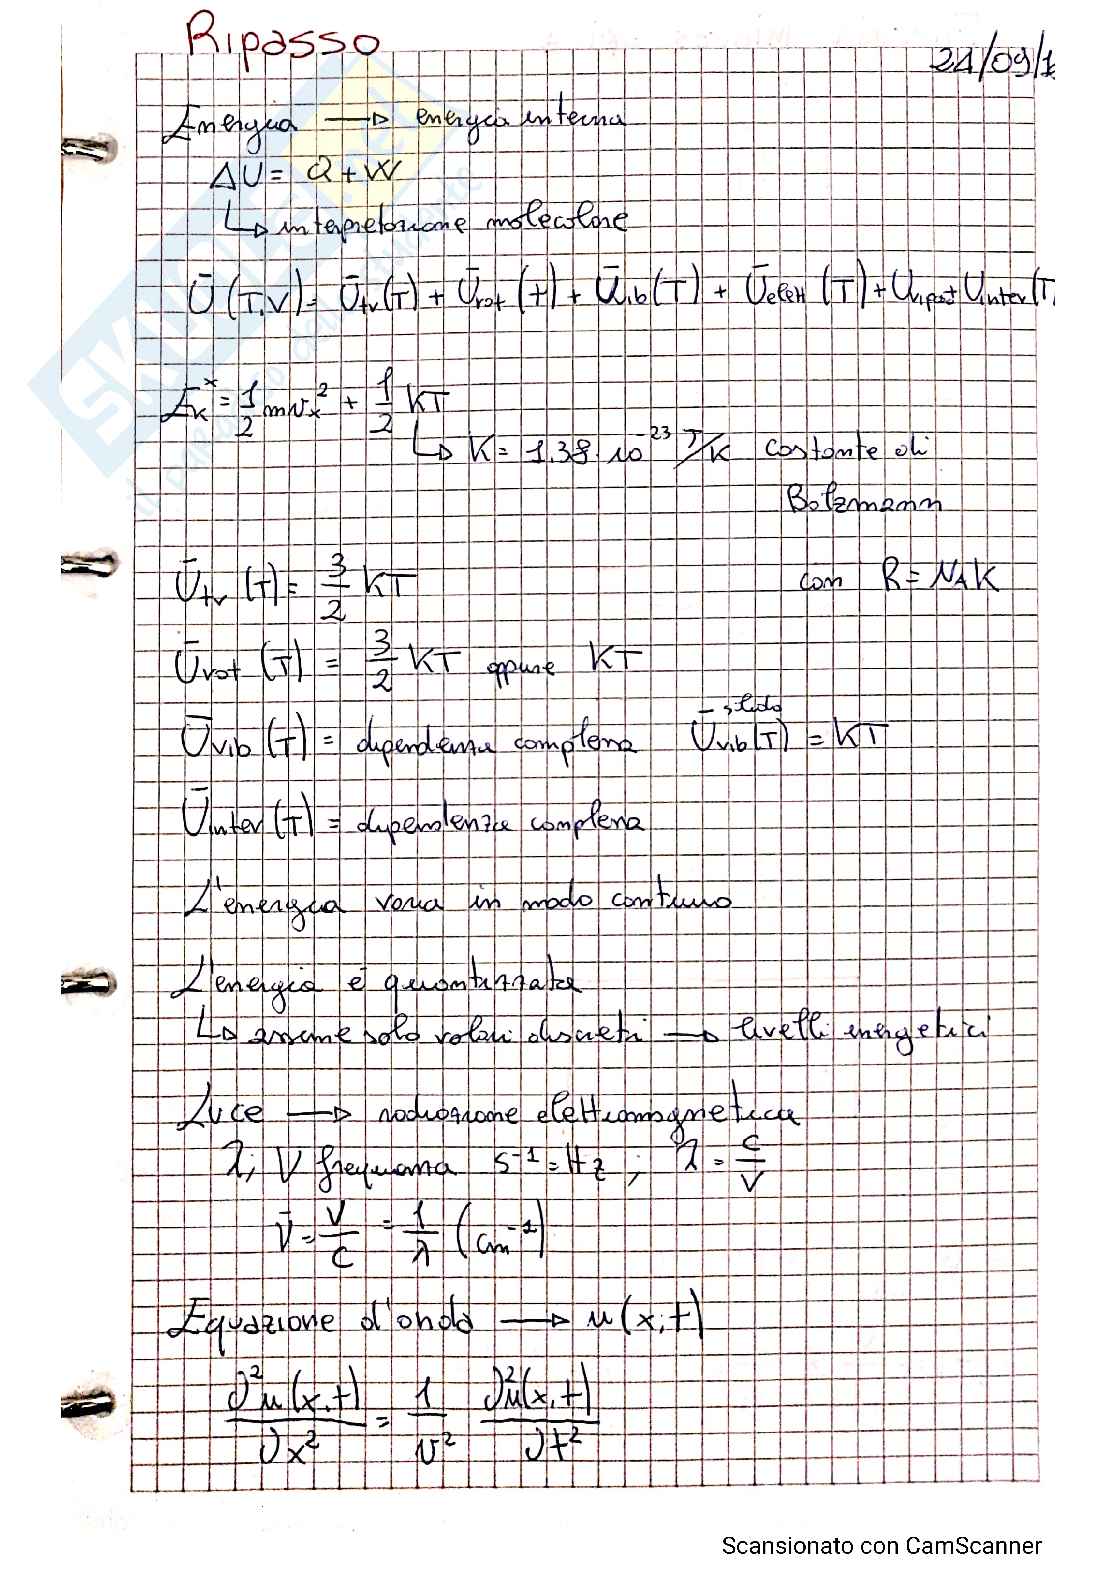 Ripasso
24/09/1
Energia → energia interna
ΔU = Q + W
↳ interpretazione molecolare
Ū(T,V) = Ūtr(T) + Ūrot(T) + Ūvib(T) + Ūelett(T) + Uripost Uinter(T,
Eₖˣ = 1/2 mvₓ² + 1/2 KT
↳ K = 1.38·10⁻²³ J/K costante di
Boltzmann
Ūtr(T) = 3/2 KT con R = NAK
Ūrot(T) = 3/2 KT oppure KT
Ūvib(T) = dipendenza complessa Ūvib(T) solido = KT
Ūinter(T) = dipendenza complessa
L'energia varia in modo continuo
L'energia è quantizzata
↳ assume solo valori discreti → livelli energetici
Luce → radiazione elettromagnetica
λ, ν frequenza s⁻¹ = Hz ; λ = c/ν
ν̄ = ν/c = 1/λ (cm⁻¹)
Equazione d'onda → u(x,t)
∂²u(x,t)/∂x² = 1/v² ∂²u(x,t)/∂t²
SKUOLA
il paradiso dello studente
Scansionato con CamScanner